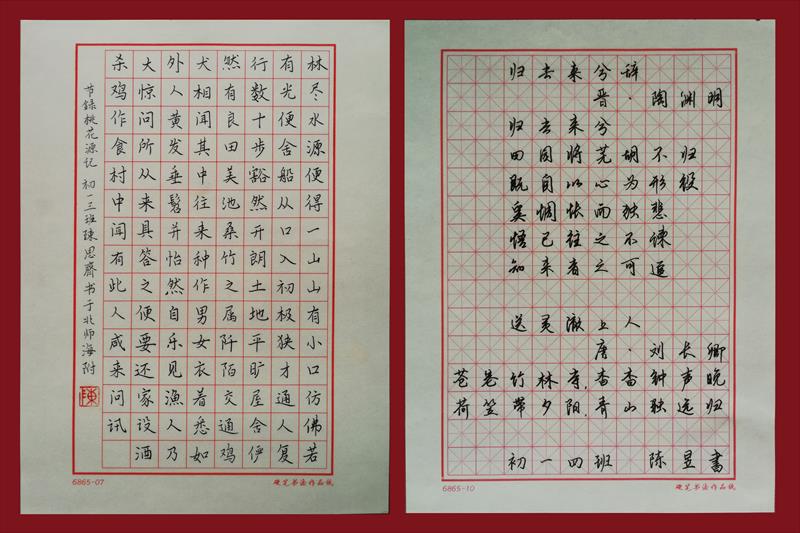 林尽水源便得一山山有小口仿佛若
有光便舍船从口入初极狭才通人复
行数十步豁然开朗土地平旷屋舍俨
然有良田美池桑竹之属阡陌交通鸡
犬相闻其中往来种作男女衣着悉如
外人黄发垂髫并怡然自乐见渔人乃
大惊问所从来具答之便要还家设酒
杀鸡作食村中闻有此人咸来问讯
节録桃花源记 初一三班陳思齊书于北师海附
陳
6865-07
硬笔书法作品纸
归去来兮辞
晋·陶渊明
归去来兮
田园将芜胡不归
既自以心为形役
奚惆怅而独悲
悟已往之不谏
知来者之可追
送灵澈上人
唐·刘长卿
苍苍竹林寺,杳杳钟声晚
荷笠带夕阳,青山独远归
初一四班 陈昱書
6865-10
硬笔书法作品纸